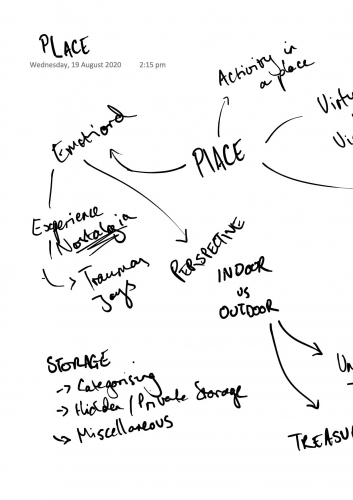 PLACE
Wednesday, 19 August 2020 2:15 pm
Activity in
a place
Virtu
Vi
Emotional
PLACE
Experience
/ Nostalgia
Traumas
Joys
PERSPECTIVE
INDOOR
vs
OUTDOOR
STORAGE
-> Categorising
-> Hidden / Private Storage
-> Miscellaneous
Un
TREASU